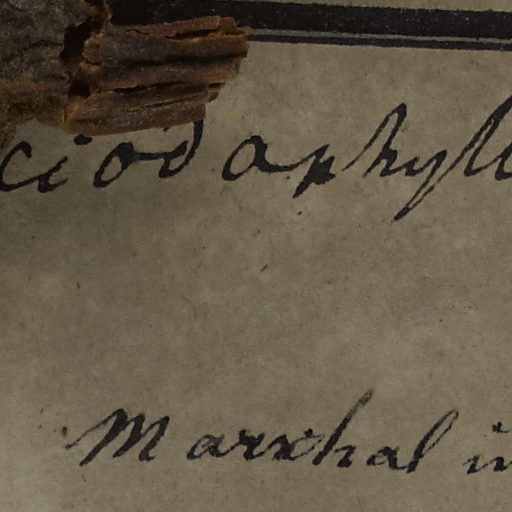 ciod aphyll
Marshal in